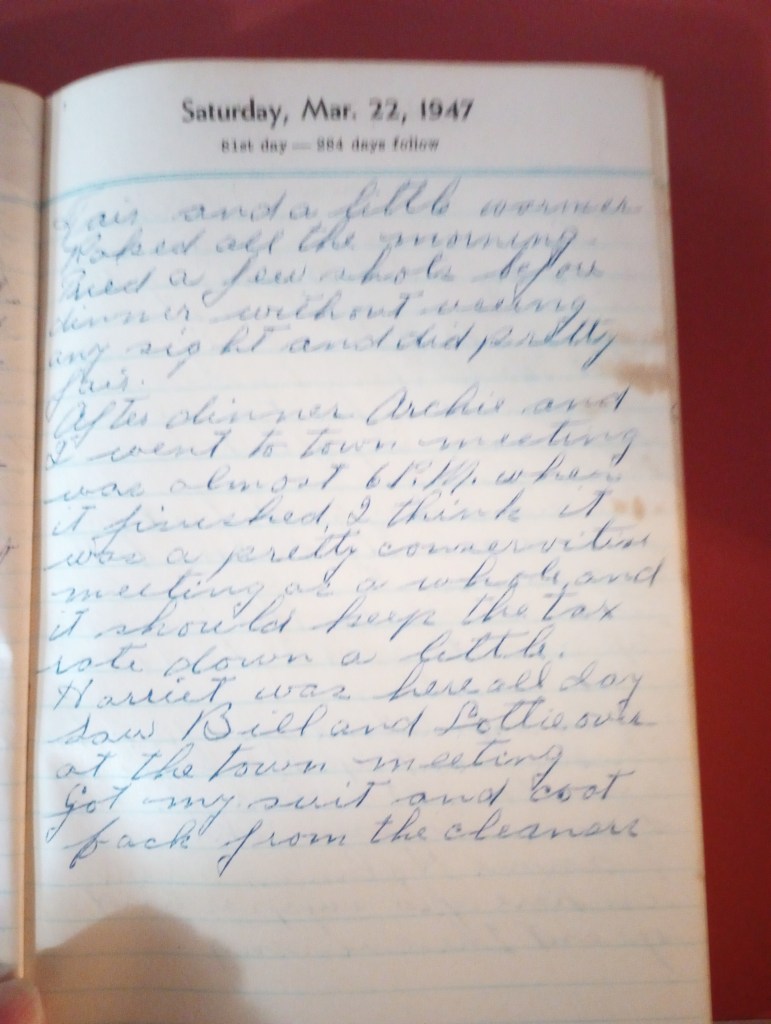 Saturday, Mar. 22, 1947
81st day — 284 days follow
Fair and a little warmer
Raked all the morning.
Fired a few shots before
dinner without using
any sight and did pretty
fair.
After dinner Archie and
I went to town meeting
was almost 6 P.M. when
it finished, I think it
was a pretty conservative
meeting as a whole, and
it should keep the tax
rate down a little.
Harriet was here all day
Saw Bill and Lottie over
at the town meeting
Got my suit and coat
back from the cleaners